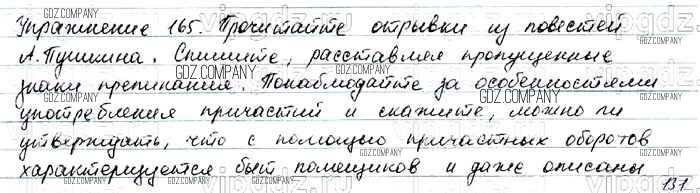 Упражнение 165. Прочитайте отрывки из повестей
А.Пушкина. Спишите, расставляя пропущенные
знаки препинания. Понаблюдайте за особенностями
употребления причастий и скажите, можно ли
утверждать, что с помощью причастных оборотов
характеризуется быт помещиков и даже описаны
137
GDZ.COMPANY
vipgdz.ru